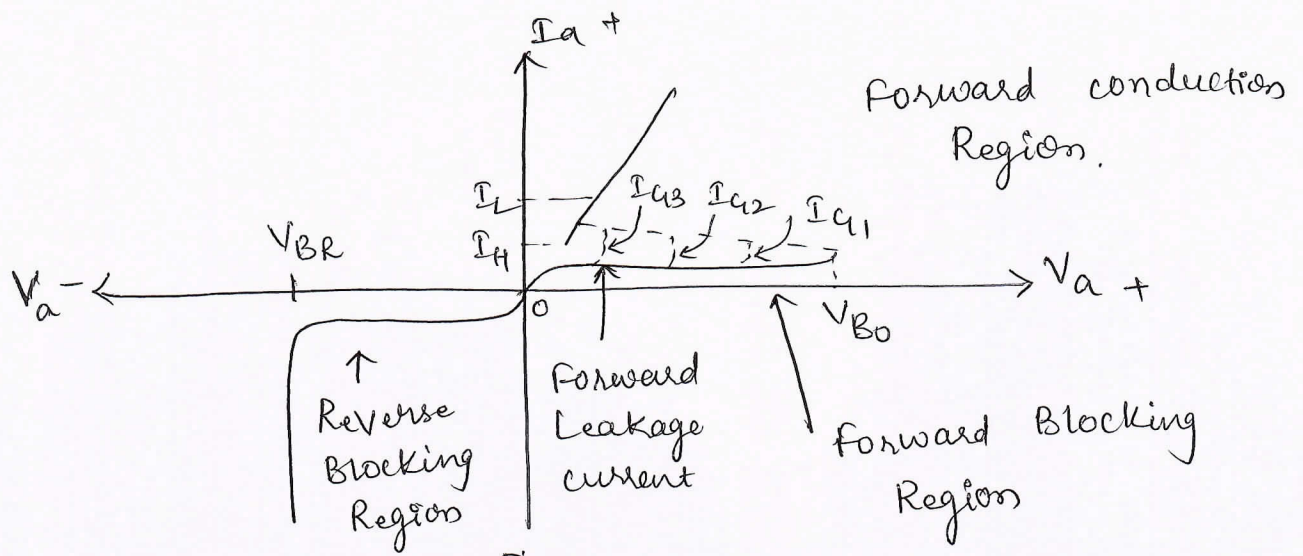 Ia +
Forward conduction
Region.
IL
IG3
IG2
IG1
VBR
IH
Va -
O
Va +
VBO
Reverse
Blocking
Region
Forward
Leakage
current
Forward Blocking
Region